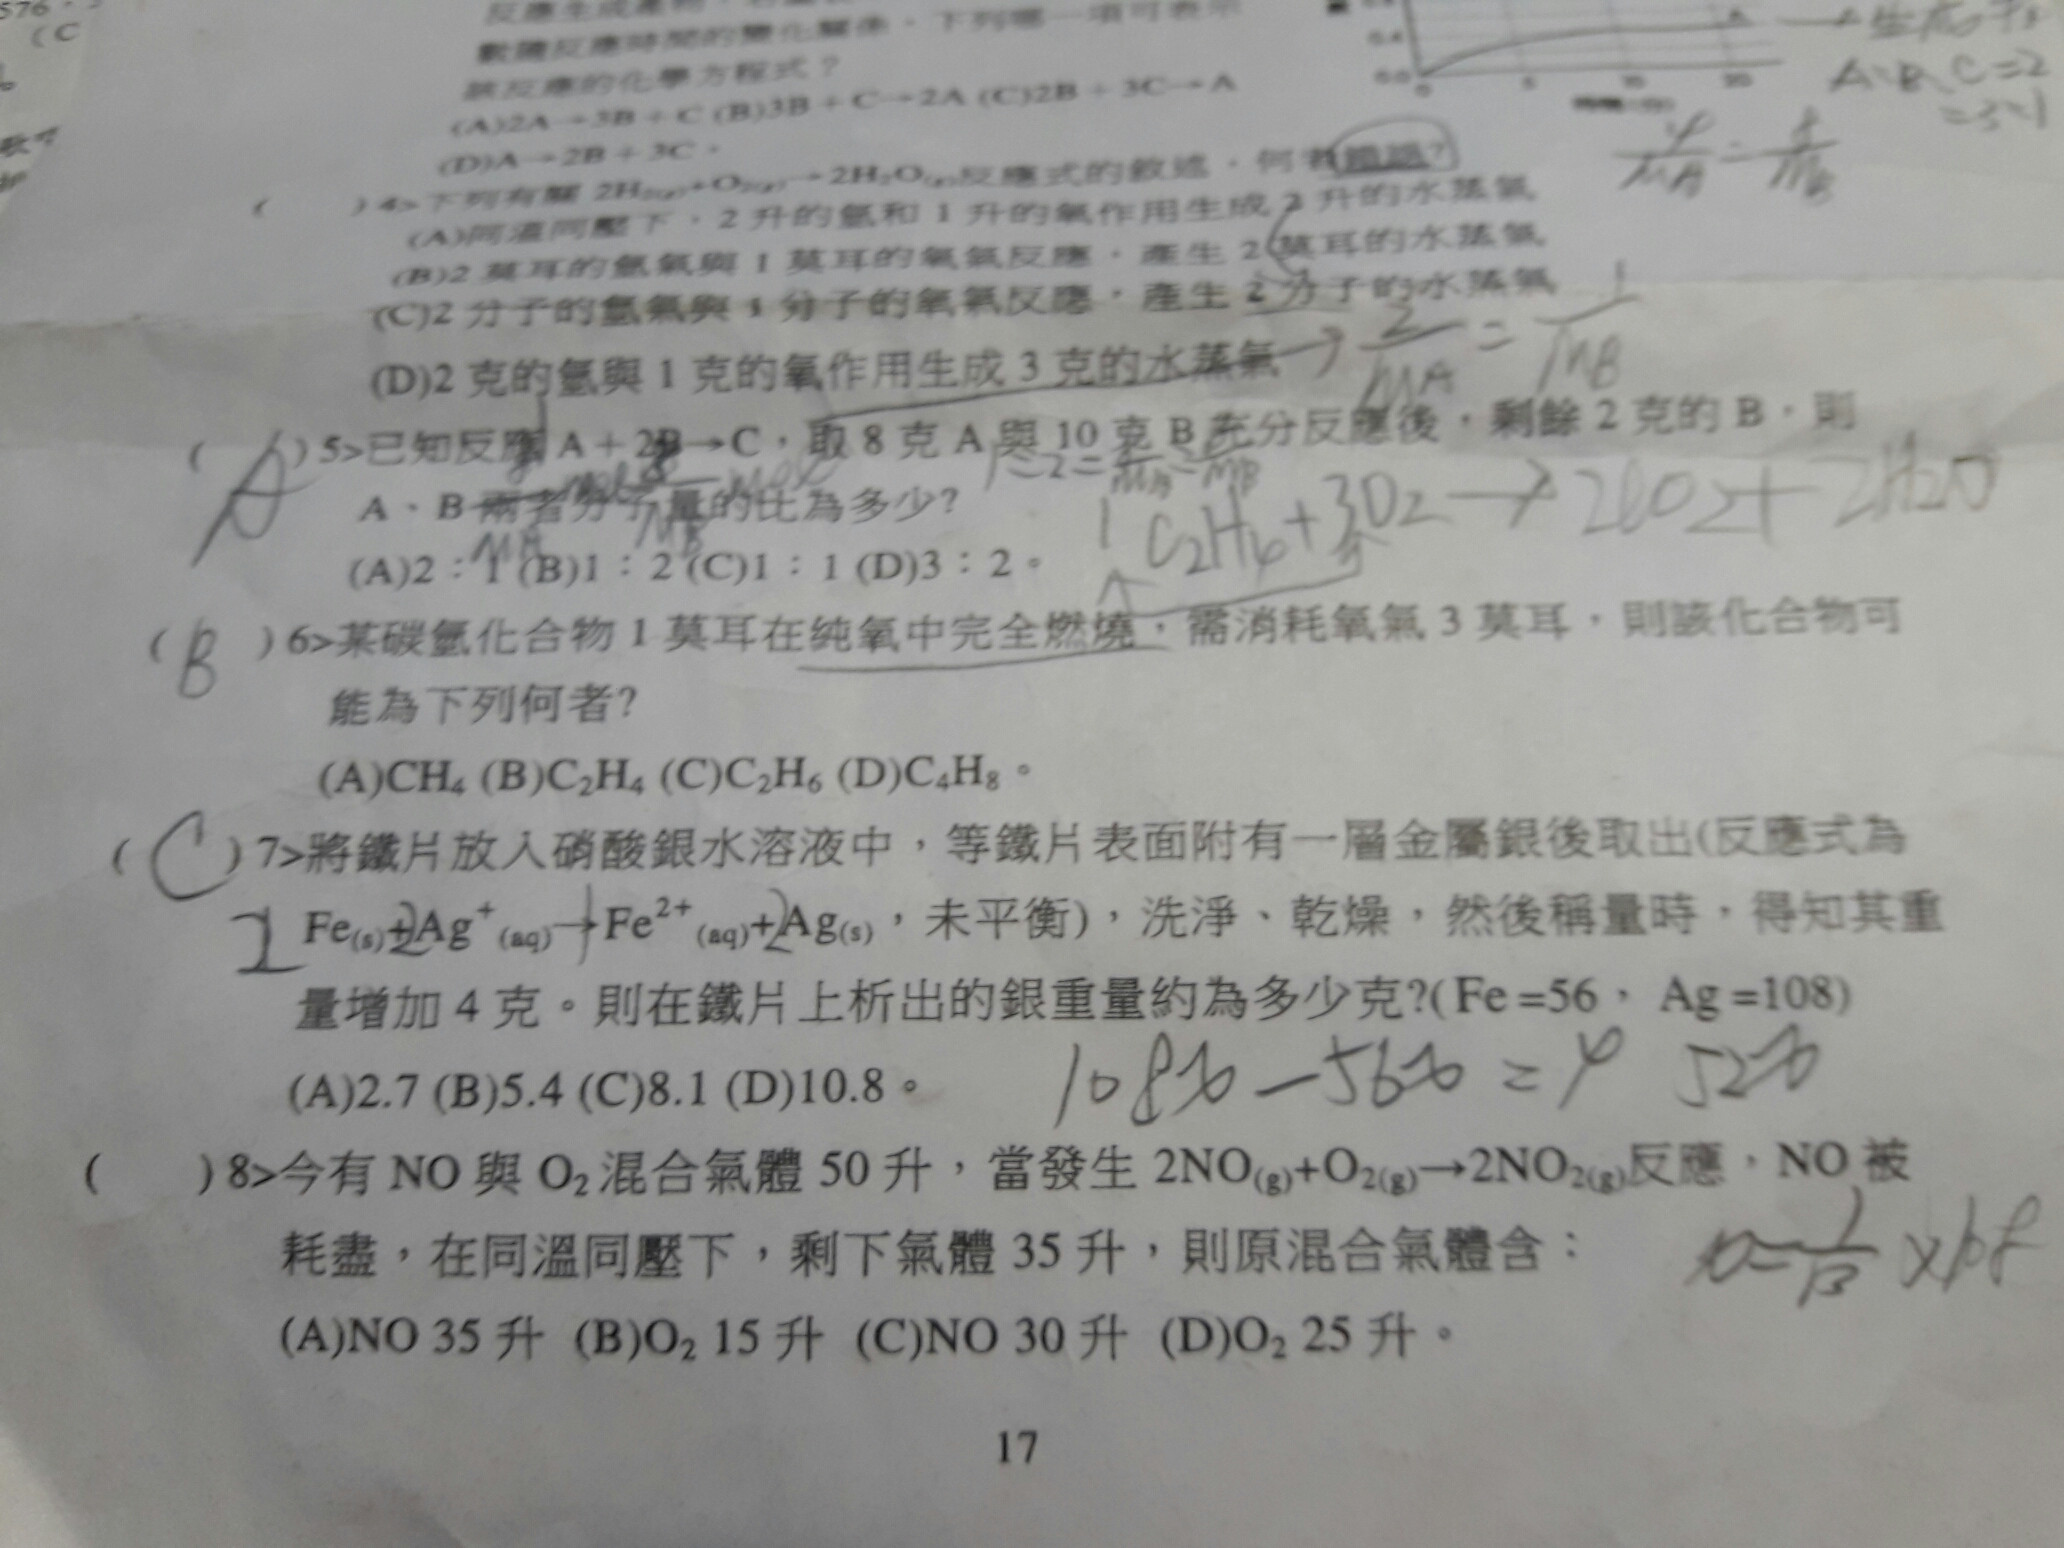 576
(C
數隨反應時間的變化關係，下列哪一項可表示
該反應的化學方程式？
(A)2A→3B+C (B)3B+C→2A (C)2B+3C→A
(D)A→2B+3C。
0.4
0.0
0 5 10 20
A、B、C=2
( )4>下列有關 2H₂(g)+O₂(g)→2H₂O(g)反應式的敘述，何者錯誤?
(A)同溫同壓下，2 升的氫和 1 升的氧作用生成 2 升的水蒸氣
(B)2 莫耳的氫氣與 1 莫耳的氧氣反應，產生 2 莫耳的水蒸氣
(C)2 分子的氫氣與 1 分子的氧氣反應，產生 2 分子的水蒸氣
(D)2 克的氫與 1 克的氧作用生成 3 克的水蒸氣
→ 2/MA = 1/MB
(A)5>已知反應 A+2B→C，取 8 克 A 與 10 克 B 充分反應後，剩餘 2 克的 B，則
A、B 兩者分子量的比為多少?
1 C₂H₄+3O₂→2CO₂+2H₂O
(A)2：1 (B)1：2 (C)1：1 (D)3：2。
(B)6>某碳氫化合物 1 莫耳在純氧中完全燃燒，需消耗氧氣 3 莫耳，則該化合物可
能為下列何者?
(A)CH₄ (B)C₂H₄ (C)C₂H₆ (D)C₄H₈。
(C)7>將鐵片放入硝酸銀水溶液中，等鐵片表面附有一層金屬銀後取出(反應式為
1 Fe(s)+2Ag⁺(aq)→1Fe²⁺(aq)+2Ag(s)，未平衡)，洗淨、乾燥，然後稱量時，得知其重
量增加 4 克。則在鐵片上析出的銀重量約為多少克?(Fe =56， Ag =108)
(A)2.7 (B)5.4 (C)8.1 (D)10.8。
108x-56x=4 52x
( )8>今有 NO 與 O₂ 混合氣體 50 升，當發生 2NO(g)+O₂(g)→2NO₂(g)反應，NO 被
耗盡，在同溫同壓下，剩下氣體 35 升，則原混合氣體含：
x=1/13×108
(A)NO 35 升 (B)O₂ 15 升 (C)NO 30 升 (D)O₂ 25 升。
17